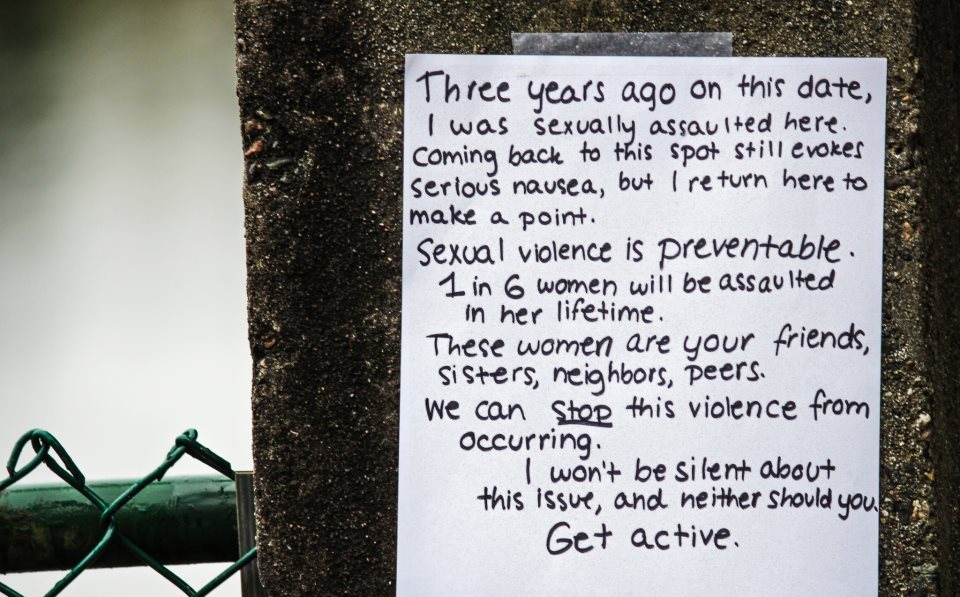 Three years ago on this date,
I was sexually assaulted here.
Coming back to this spot still evokes
serious nausea, but I return here to
make a point.
Sexual violence is preventable.
1 in 6 women will be assaulted
in her lifetime.
These women are your friends,
sisters, neighbors, peers.
We can stop this violence from
occurring.
I won't be silent about
this issue, and neither should you.
Get active.